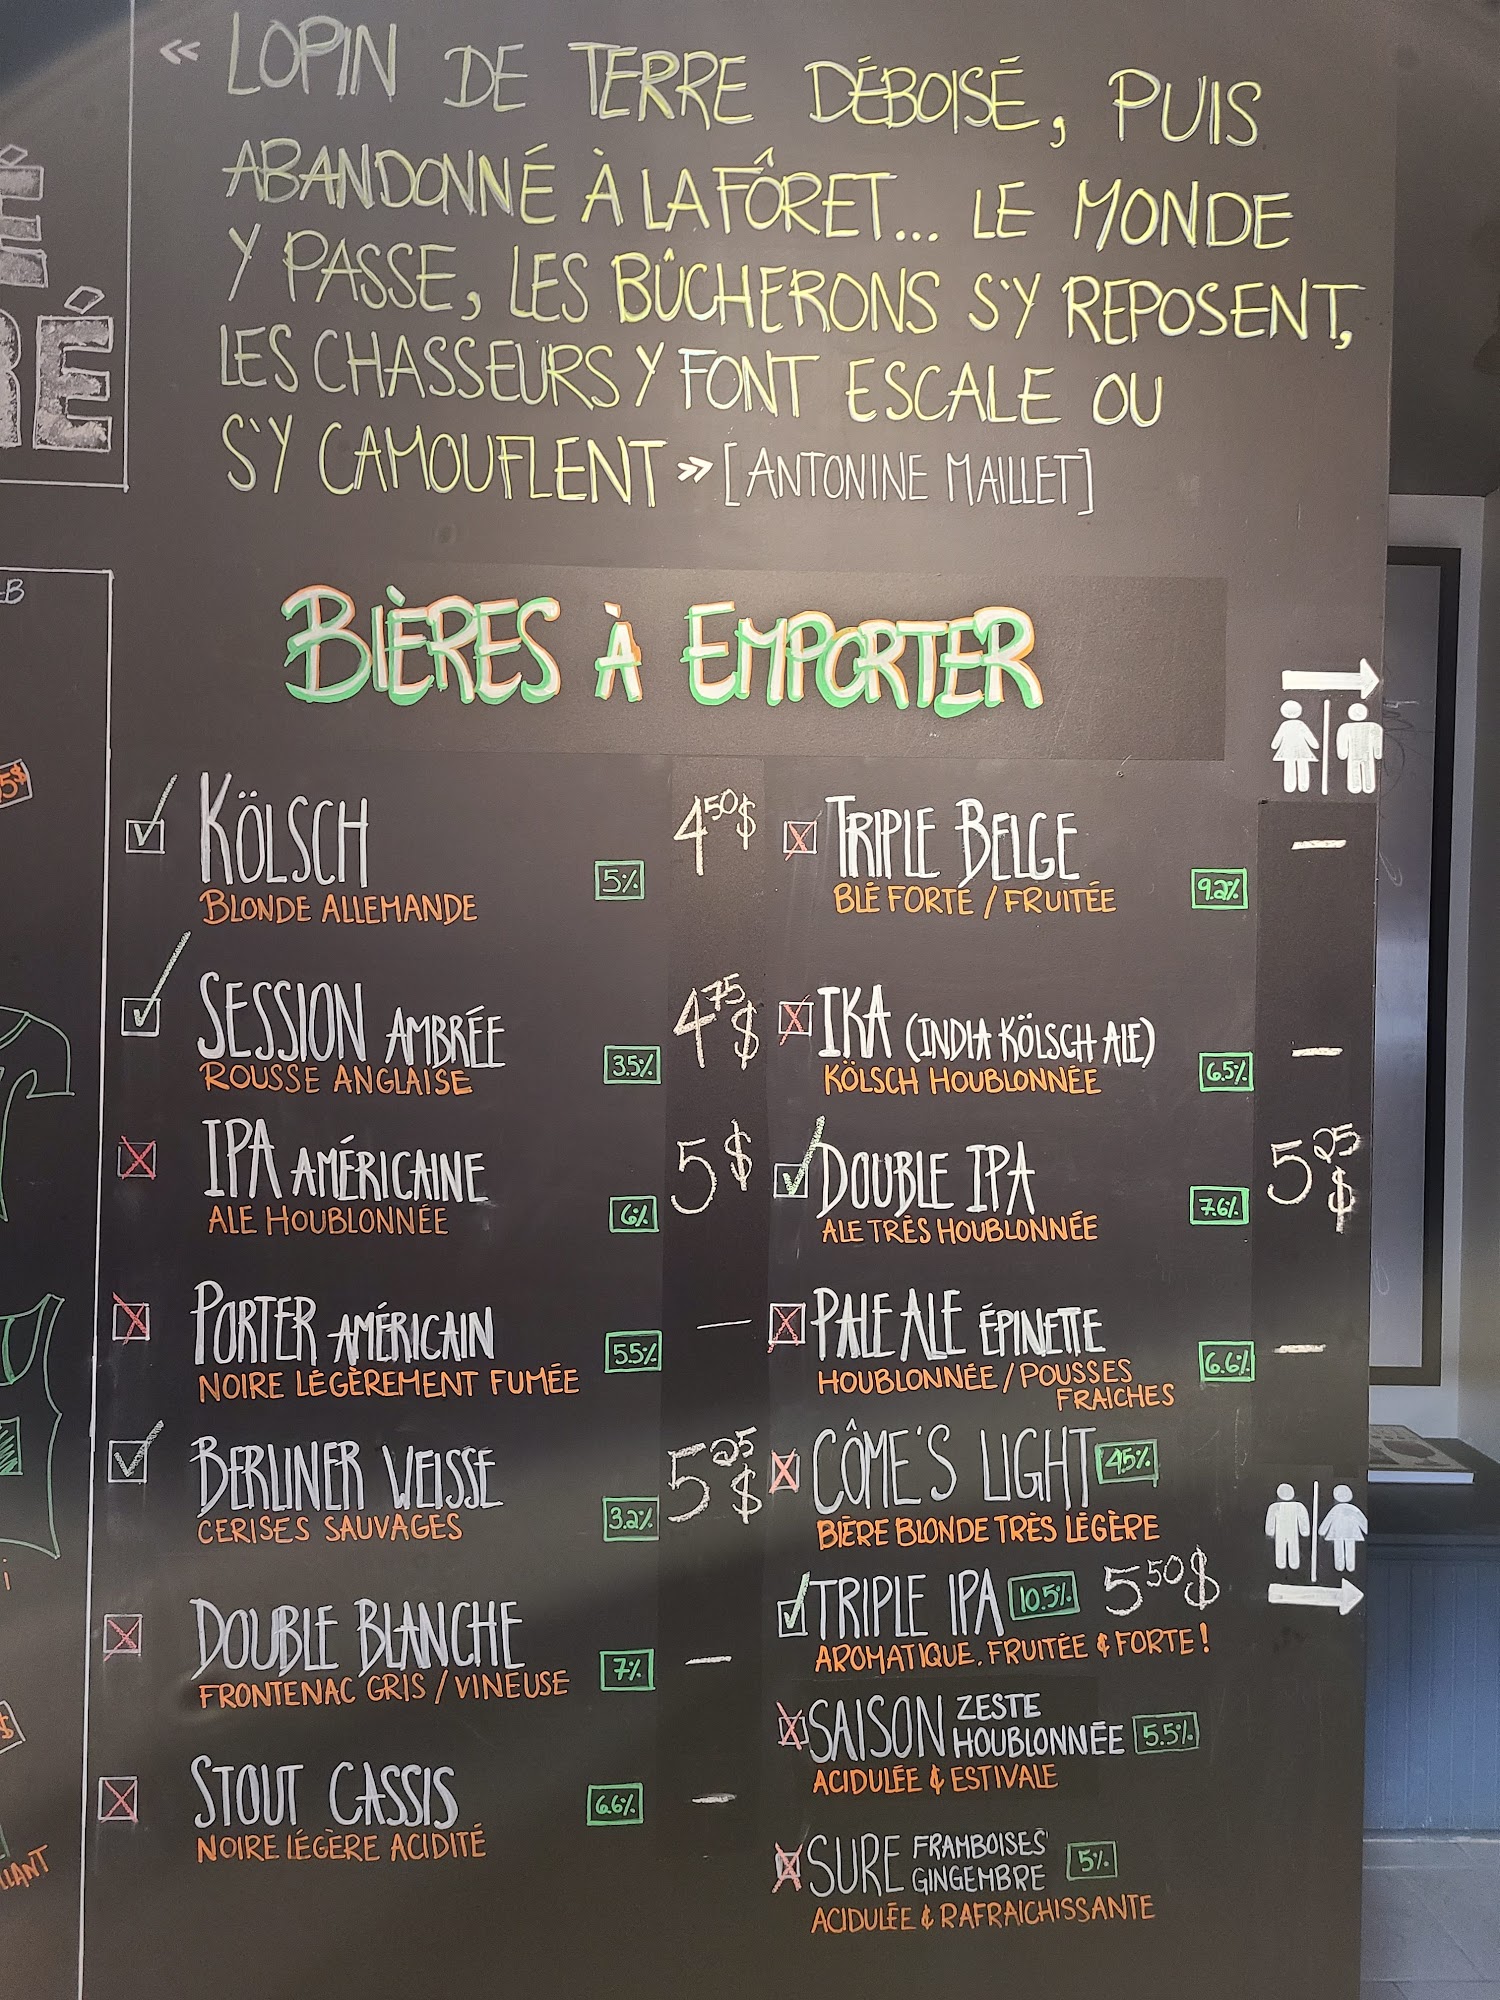 « LOPIN DE TERRE DÉBOISÉ, PUIS
ABANDONNÉ À LA FÔRET... LE MONDE
Y PASSE, LES BÛCHERONS S'Y REPOSENT,
LES CHASSEURS Y FONT ESCALE OU
S'Y CAMOUFLENT » [ANTONINE MAILLET]
BIÈRES À EMPORTER
KÖLSCH 5% 4.50$
BLONDE ALLEMANDE
SESSION AMBRÉE 3.5% 4.75$
ROUSSE ANGLAISE
IPA AMÉRICAINE 6% 5$
ALE HOUBLONNÉE
PORTER AMÉRICAIN 5.5% —
NOIRE LÉGÈREMENT FUMÉE
BERLINER WEISSE 3.2% 5.25$
CERISES SAUVAGES
DOUBLE BLANCHE 7% —
FRONTENAC GRIS / VINEUSE
STOUT CASSIS 6.6% —
NOIRE LÉGÈRE ACIDITÉ
TRIPLE BELGE 9.2% —
BLÉ FORTE / FRUITÉE
IKA (INDIA KÖLSCH ALE) 6.5% —
KÖLSCH HOUBLONNÉE
DOUBLE IPA 7.6% 5.25$
ALE TRÈS HOUBLONNÉE
PALE ALE ÉPINETTE 6.6% —
HOUBLONNÉE / POUSSES
FRAICHES
CÔME'S LIGHT 4.5%
BIÈRE BLONDE TRÈS LÉGÈRE
TRIPLE IPA 10.5% 5.50$
AROMATIQUE, FRUITÉE & FORTE!
SAISON ZESTE
HOUBLONNÉE 5.5%
ACIDULÉE & ESTIVALE
SURE FRAMBOISES
GINGEMBRE 5%
ACIDULÉE & RAFRAICHISSANTE